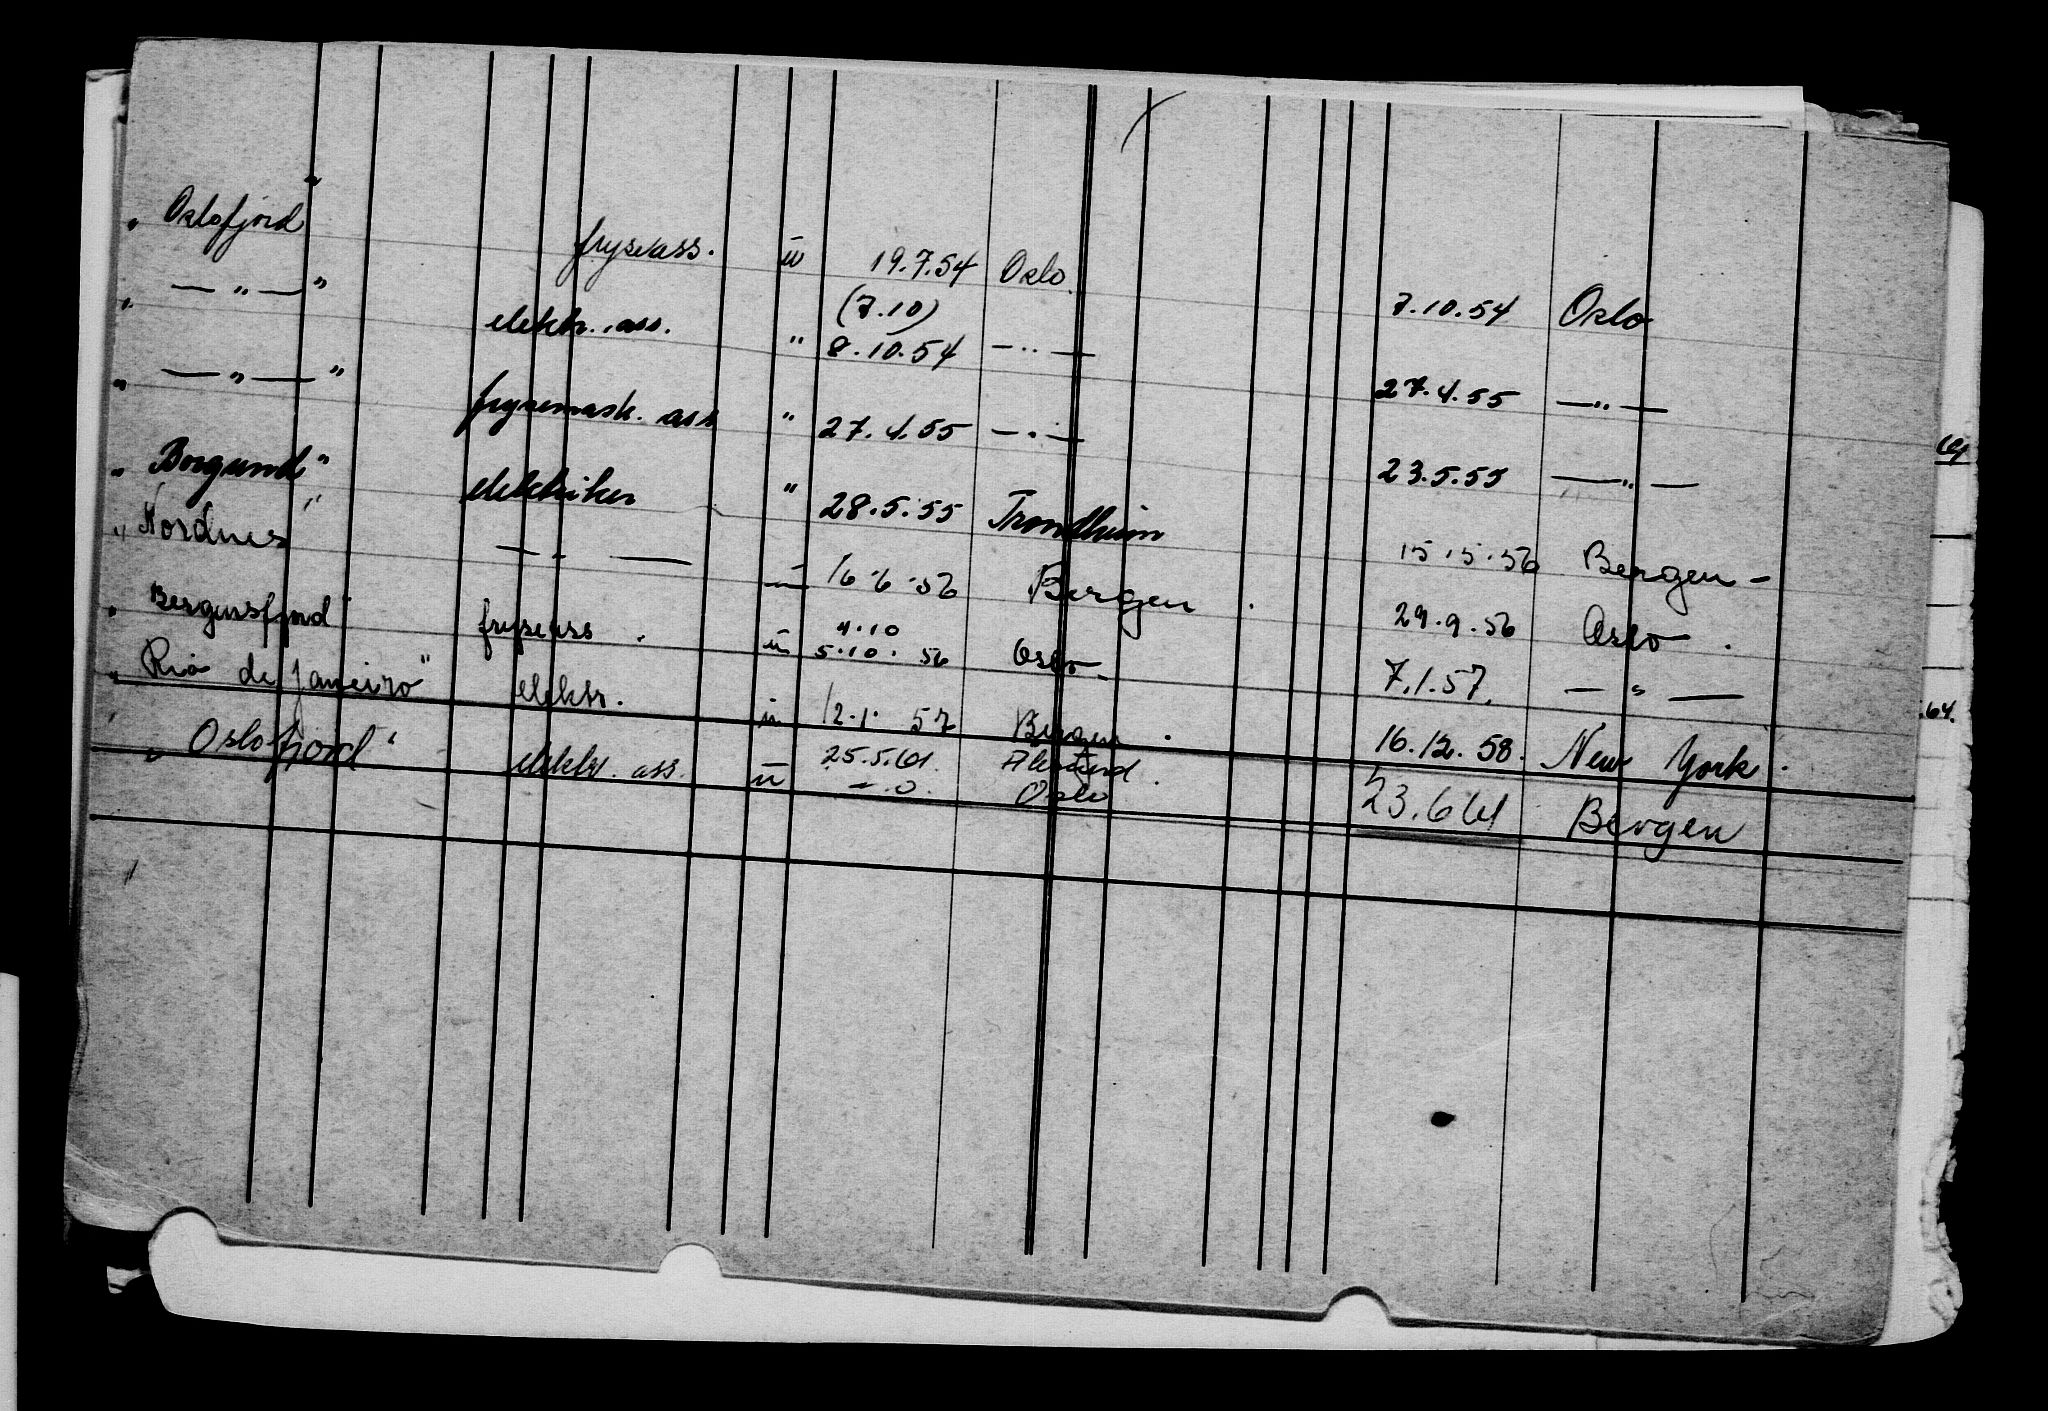 „ Oslofjord " fryseass. ū 19.7.54 Oslo. 7.10.54 Oslo
„ — „ — " elektr. ass. " (7.10) 8.10.54 — „ — 27.4.55 — „ —
„ — „ — " frysemask. ass " 27.4.55 — „ — 23.5.55 — „ —
„ Borgund " elektriker " 28.5.55 Trondheim 15.5.56 Bergen –
„ Nordnes " — „ — ū 16.6.56 Bergen . 29.9.56 Oslo .
„ Bergensfjord " fryseass . ū 4.10 5.10.56 Oslo 7.1.57. — „ —
„ Rio de Janeiro " elektr. ū 12.1.57 Bergen . 16.12.58. New York .
„ Oslofjord " elektr. ass. ū 25.5.61. Ålesund . 23.6 61 Bergen
Oslo
64.